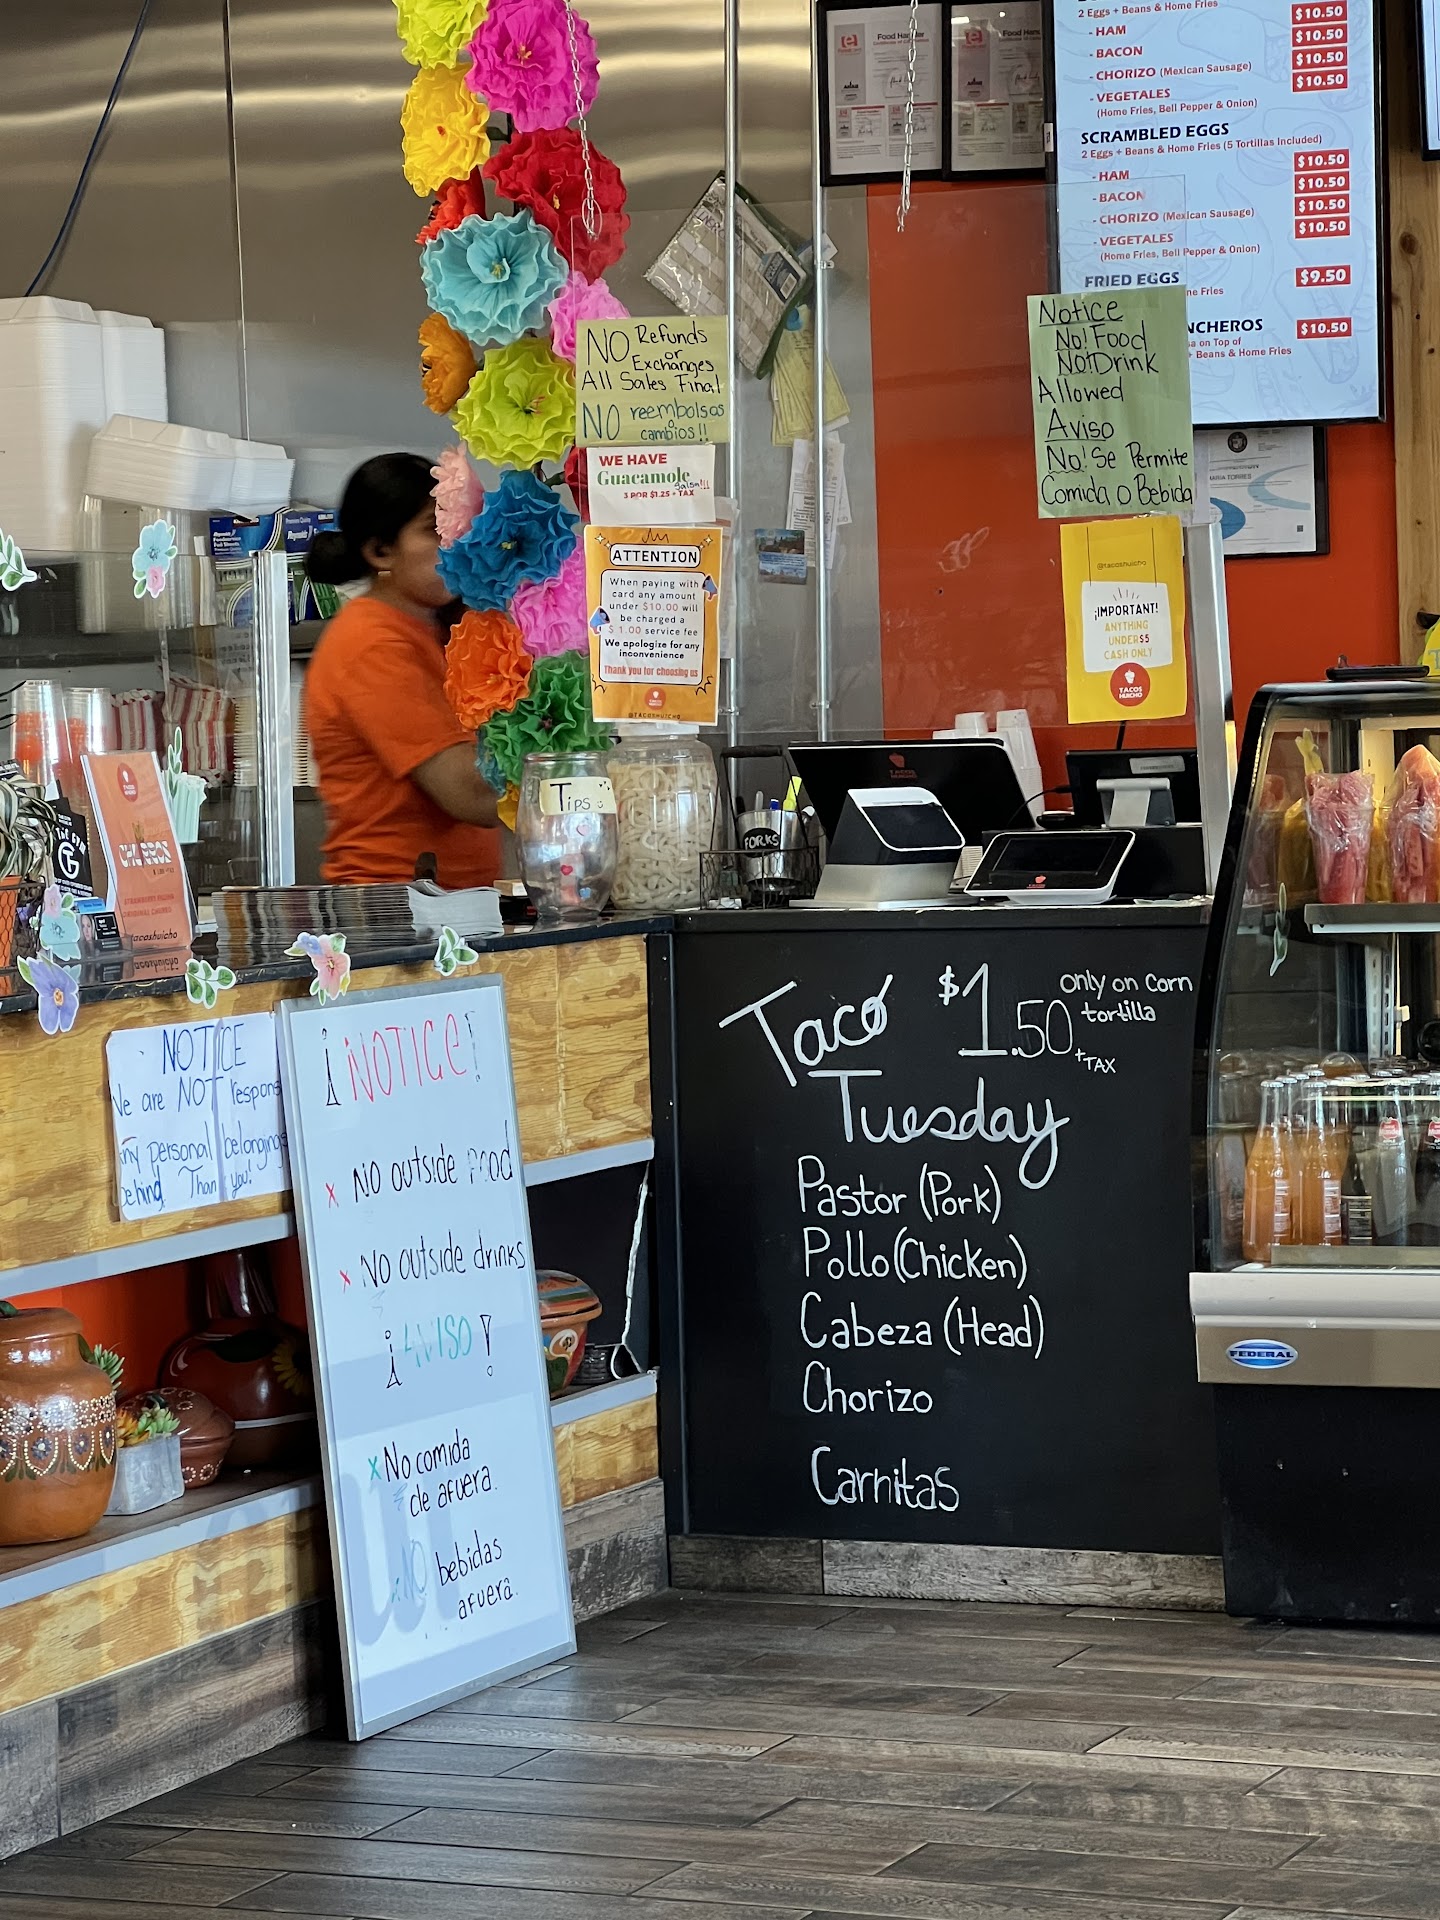 2 Eggs + Beans & Home Fries
$10.50
- HAM
$10.50
- BACON
$10.50
- CHORIZO (Mexican Sausage)
$10.50
- VEGETALES
(Home Fries, Bell Pepper & Onion)
SCRAMBLED EGGS
2 Eggs + Beans & Home Fries (5 Tortillas Included)
- HAM
$10.50
- BACON
$10.50
- CHORIZO (Mexican Sausage)
$10.50
- VEGETALES
$10.50
(Home Fries, Bell Pepper & Onion)
FRIED EGGS
$9.50
Fries
NCHEROS
$10.50
on Top of
+ Beans & Home Fries
Food
Food
NO Refunds
or
Exchanges
All Sales Final
NO reembolsos
o
cambios!!
WE HAVE
Guacamole
Salsa!!!
3 POR $1.25 + TAX
ATTENTION
When paying with
card any amount
under $10.00 will
be charged a
$ 1.00 service fee
We apologize for any
inconvenience
Thank you for choosing us
@TACOSHUICHO
Notice
No! Food
No! Drink
Allowed
Aviso
No! Se Permite
Comida o Bebida
@tacoshuicho
¡IMPORTANT!
ANYTHING
UNDER $5
CASH ONLY
TACOS
HUICHO
MARIA TORRES
Reynolds
Tips
FORKS
CHURROS
ORIGINAL CHURRO
tacoshuicho
NOTICE
We are NOT respons
any personal belongings
behind. Thank you!
¡NOTICE!
x NO outside food
x NO outside drinks
¡AVISO!
x No comida
de afuera.
NO bebidas
afuera.
Taco
Tuesday
$1.50
+TAX
only on corn
tortilla
Pastor (Pork)
Pollo (Chicken)
Cabeza (Head)
Chorizo
Carnitas
FEDERAL